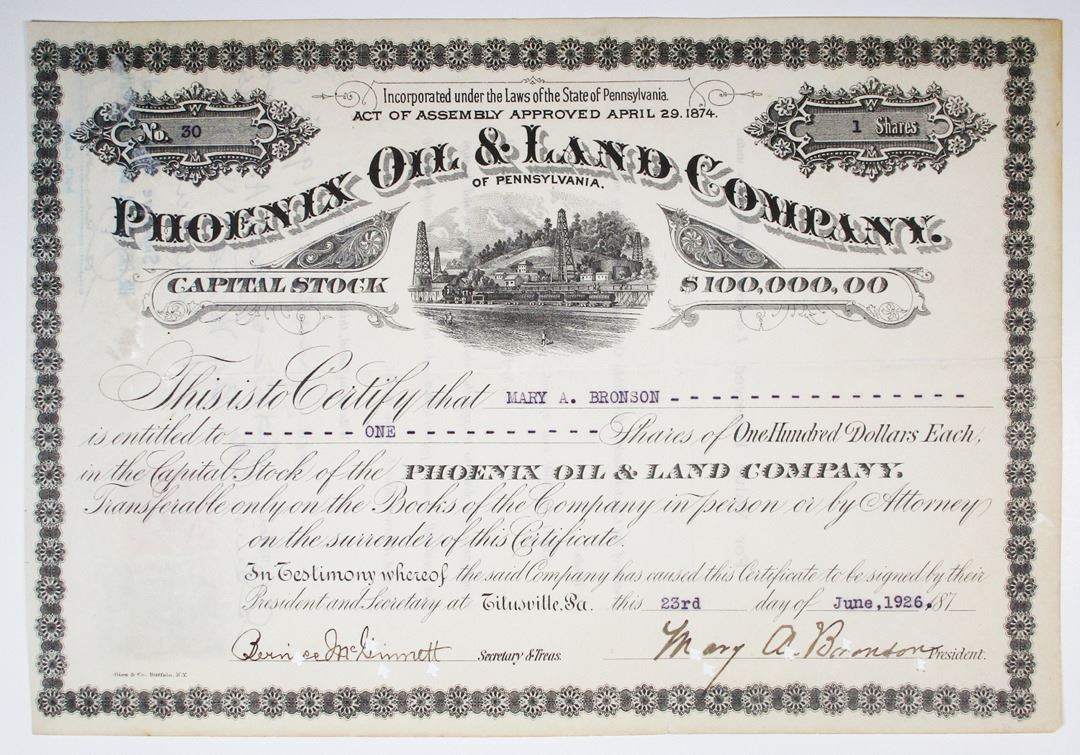 Incorporated under the Laws of the State of Pennsylvania.
ACT OF ASSEMBLY APPROVED APRIL 29. 1874.
No. 30
1 Shares
PHOENIX OIL & LAND COMPANY.
OF PENNSYLVANIA.
CAPITAL STOCK
$100,000,00
This is to Certify that MARY A. BRONSON - - - - - - - - - - - - - - - -
is entitled to - - - - - - ONE - - - - - - - - - - - Shares of One Hundred Dollars Each,
in the Capital Stock of the PHOENIX OIL & LAND COMPANY.
Transferable only on the Books of the Company in person or by Attorney
on the surrender of this Certificate.
In Testimony whereof the said Company has caused this Certificate to be signed by their
President and Secretary at Titusville, Pa. this 23rd day of June, 1926. 187
Secretary & Treas.
Mary A. Bronson President.
& Co. Buffalo, N.Y.